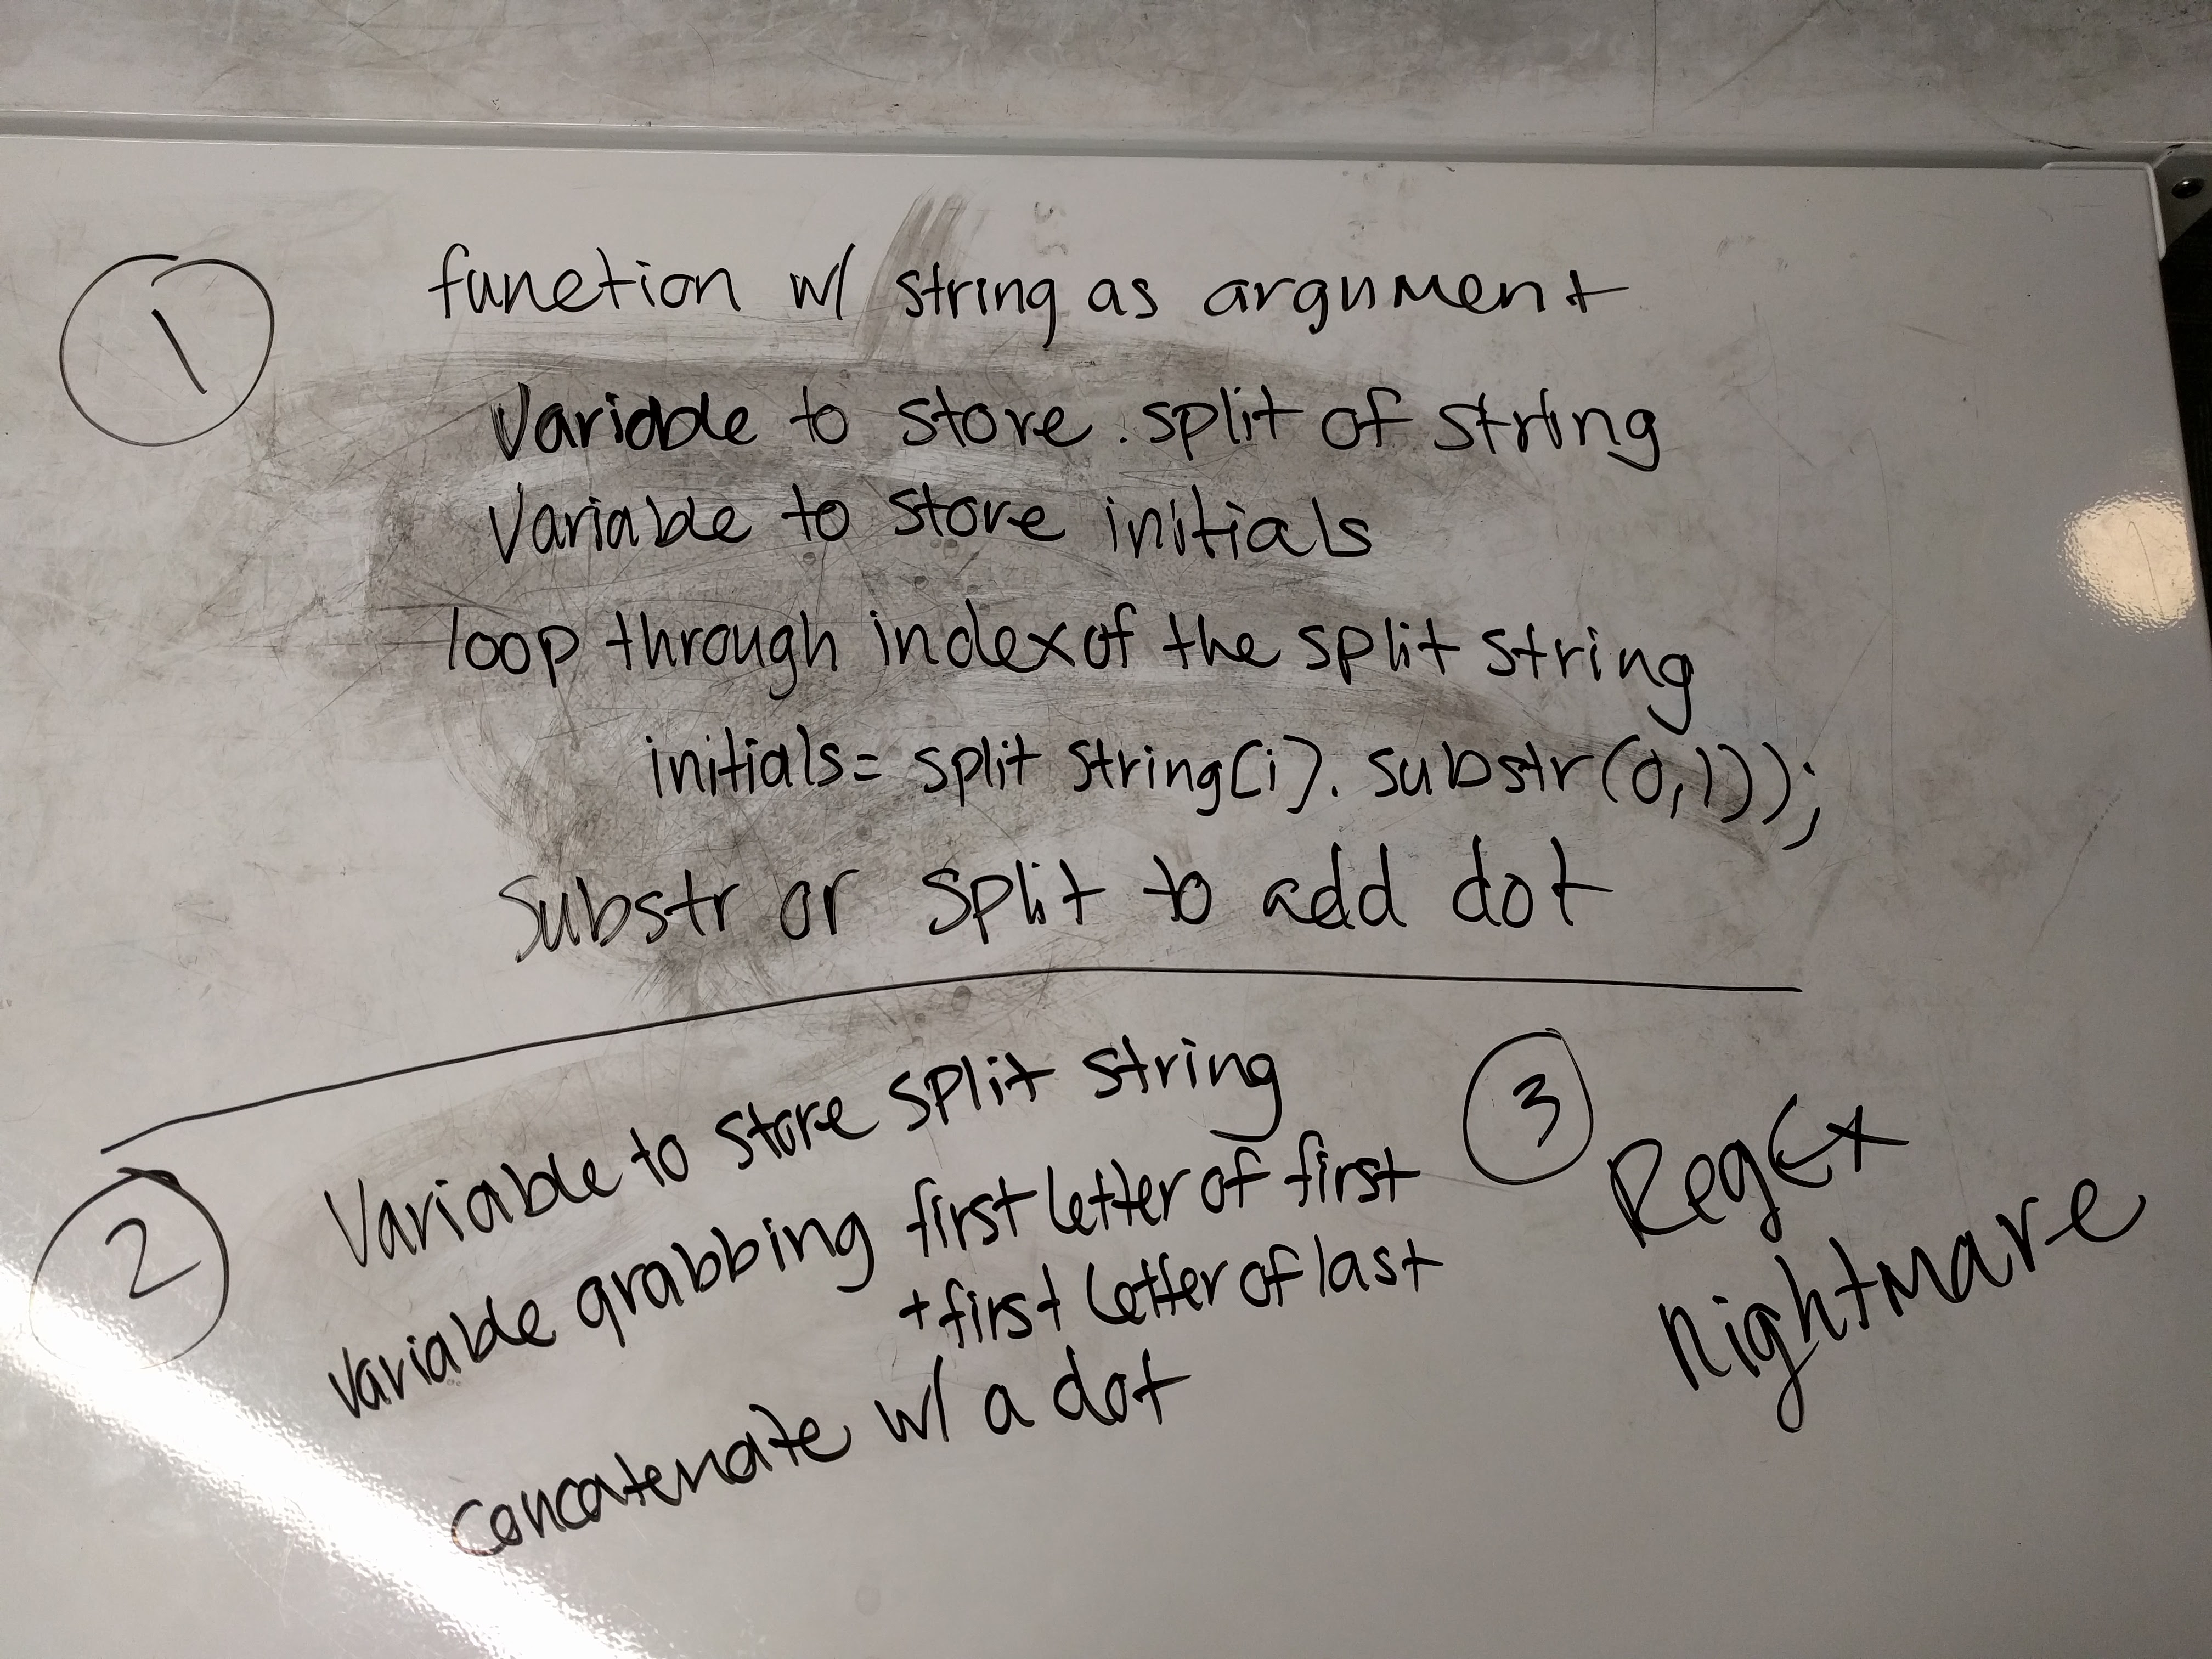 1
function w/ string as argument
Variable to store .split of string
Variable to store initials
loop through index of the split string
initials= split string[i].substr(0,1));
Substr or split to add dot
2
Variable to store split string
variable grabbing first letter of first
+ first letter of last
concatenate w/ a dot
3
RegEx
nightmare